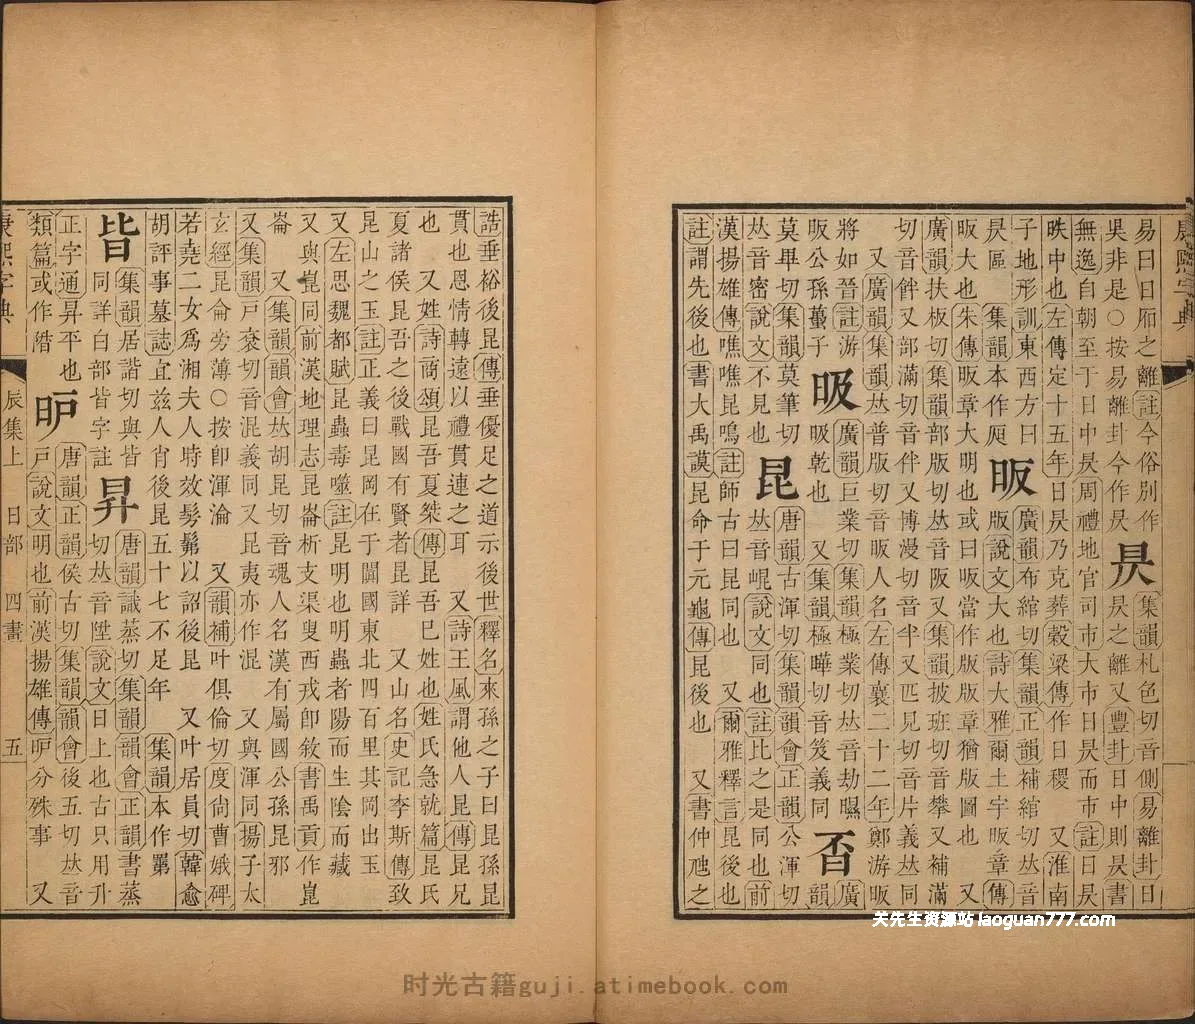 康熙字典
易曰日昃之離註今俗別作
吳非是○按易離卦今作昃
昗集韻札色切音側易離卦日
昃之離又豐卦日中則昃書
無逸自朝至于日中昃周禮地官司市大市日昃而市註日昃
昳中也左傳定十五年日昃乃克葬穀梁傳作日稷 又淮南
子地形訓東西方曰
昃區 集韻本作𠨮
昄廣韻布綰切集韻正韻補綰切𠀤音
版說文大也詩大雅爾土宇昄章傳
昄大也朱傳昄章大明也或曰昄當作版版章猶版圖也 又
廣韻扶板切集韻部版切𠀤音阪又集韻披班切音攀又補滿
切音𩚳又部滿切音伴又博漫切音半又匹見切音片義𠀤同
又廣韻集韻𠀤普版切音眅人名左傳襄二十二年鄭游昄
將如晉註游
昄公孫蠆子
昅廣韻巨業切集韻極業切𠀤音劫曝
昅乾也 又集韻極曄切音笈義同
否廣韻
莫畢切集韻莫筆切
𠀤音密說文不見也
昆唐韻古渾切集韻韻會正韻公渾切
𠀤音崐說文同也註比之是同也前
漢揚雄傳噍噍昆鳴註師古曰昆同也 又爾雅釋言昆後也
註謂先後也書大禹謨昆命于元龜傳昆後也 又書仲虺之
誥垂裕後昆傳垂優足之道示後世釋名來孫之子曰昆孫昆
貫也恩情轉遠以禮貫連之耳 又詩王風謂他人昆傳昆兄
也 又姓詩商頌昆吾夏桀傳昆吾巳姓也姓氏急就篇昆氏
夏諸侯昆吾之後戰國有賢者昆詳 又山名史記李斯傳致
昆山之玉註正義曰昆岡在于闐國東北四百里其岡出玉
又左思魏都賦昆蟲毒噬註昆明也明蟲者陽而生陰而藏
又與崑同前漢地理志昆崙析支渠叟西戎卽敘書禹貢作崑
崙 又集韻韻會𠀤胡昆切音魂人名漢有屬國公孫昆邪
又集韻戸袞切音混義同又昆夷亦作混 又與渾同揚子太
玄經昆侖旁薄○按卽渾淪 又韻補叶俱倫切度尙曹娥碑
若堯二女爲湘夫人時效髣髴以詔後昆 又叶居員切韓愈
胡評事墓誌宜兹人肖後昆五十七不足年 集韻本作𦋺
皆集韻居諧切與皆
同詳白部皆字註
昇唐韻識蒸切集韻韻會正韻書蒸
切𠀤音陞說文日上也古只用升
正字通昇平也
類篇或作㴍
昈唐韻正韻侯古切集韻韻會後五切𠀤音
戸說文明也前漢揚雄傳昈分殊事 又
康熙字典
辰集上 日部 四畫 五
关先生资源站 laoguan777.com
时光古籍guji.atimebook.com